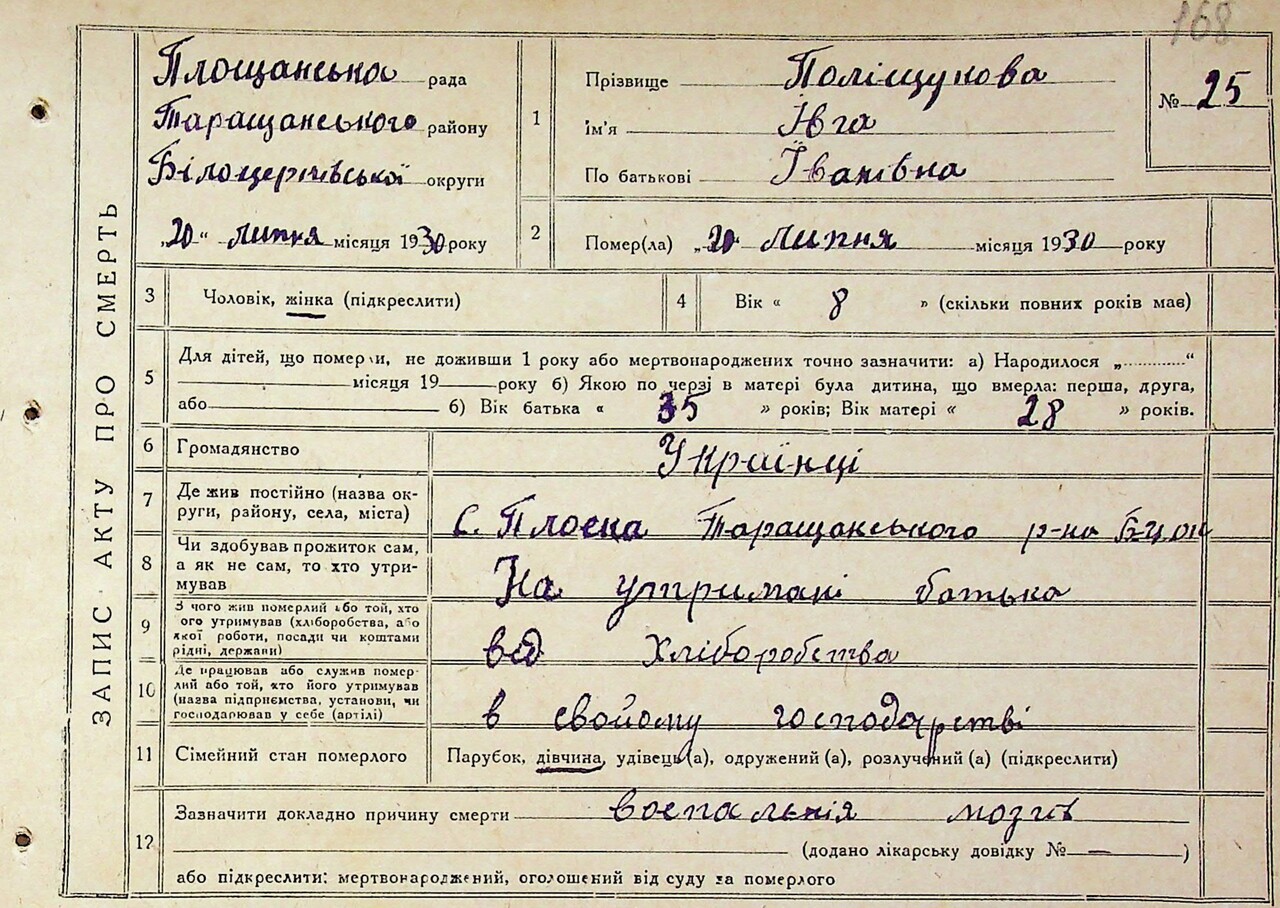 168
ЗАПИС АКТУ ПРО СМЕРТЬ
Площанська рада
Таращанського району
Білоцерківської округи
„20“ липня місяця 1930 року
1
Прізвище Поліщукова
Ім'я Івга
По батькові Іванівна
№ 25
2
Помер(ла) „20 липня місяця 1930 року
3
Чоловік, жінка (підкреслити)
4
Вік « 8 » (скільки повних років має)
5
Для дітей, що померли, не доживши 1 року або мертвонароджених точно зазначити: а) Народилося „............“
місяця 19 року б) Якою по черзі в матері була дитина, що вмерла: перша, друга,
або б) Вік батька « 35 » років; Вік матері « 28 » років.
6
Громадянство
Українці
7
Де жив постійно (назва ок-
руги, району, села, міста)
с. Плоска Таращанського р-на
8
Чи здобував прожиток сам,
а як не сам, то хто утри-
мував
На утримані батька
9
З чого жив померлий або той, хто
ого утримував (хліборобства, або
якої роботи, посади чи коштами
рідні, держави)
від Хліборобства
10
Де працював або служив помер-
лий або той, хто його утримував
(назва підприємства, установи, чи
господарював у себе (артілі)
в свойому господарстві
11
Сімейний стан померлого
Парубок, дівчина, удівець (а), одружений (а), розлучений (а) (підкреслити)
12
Зазначити докладно причину смерти воспальнія мозгів
(додано лікарську довідку № — )
або підкреслити: мертвонароджений, оголошений від суду за померлого